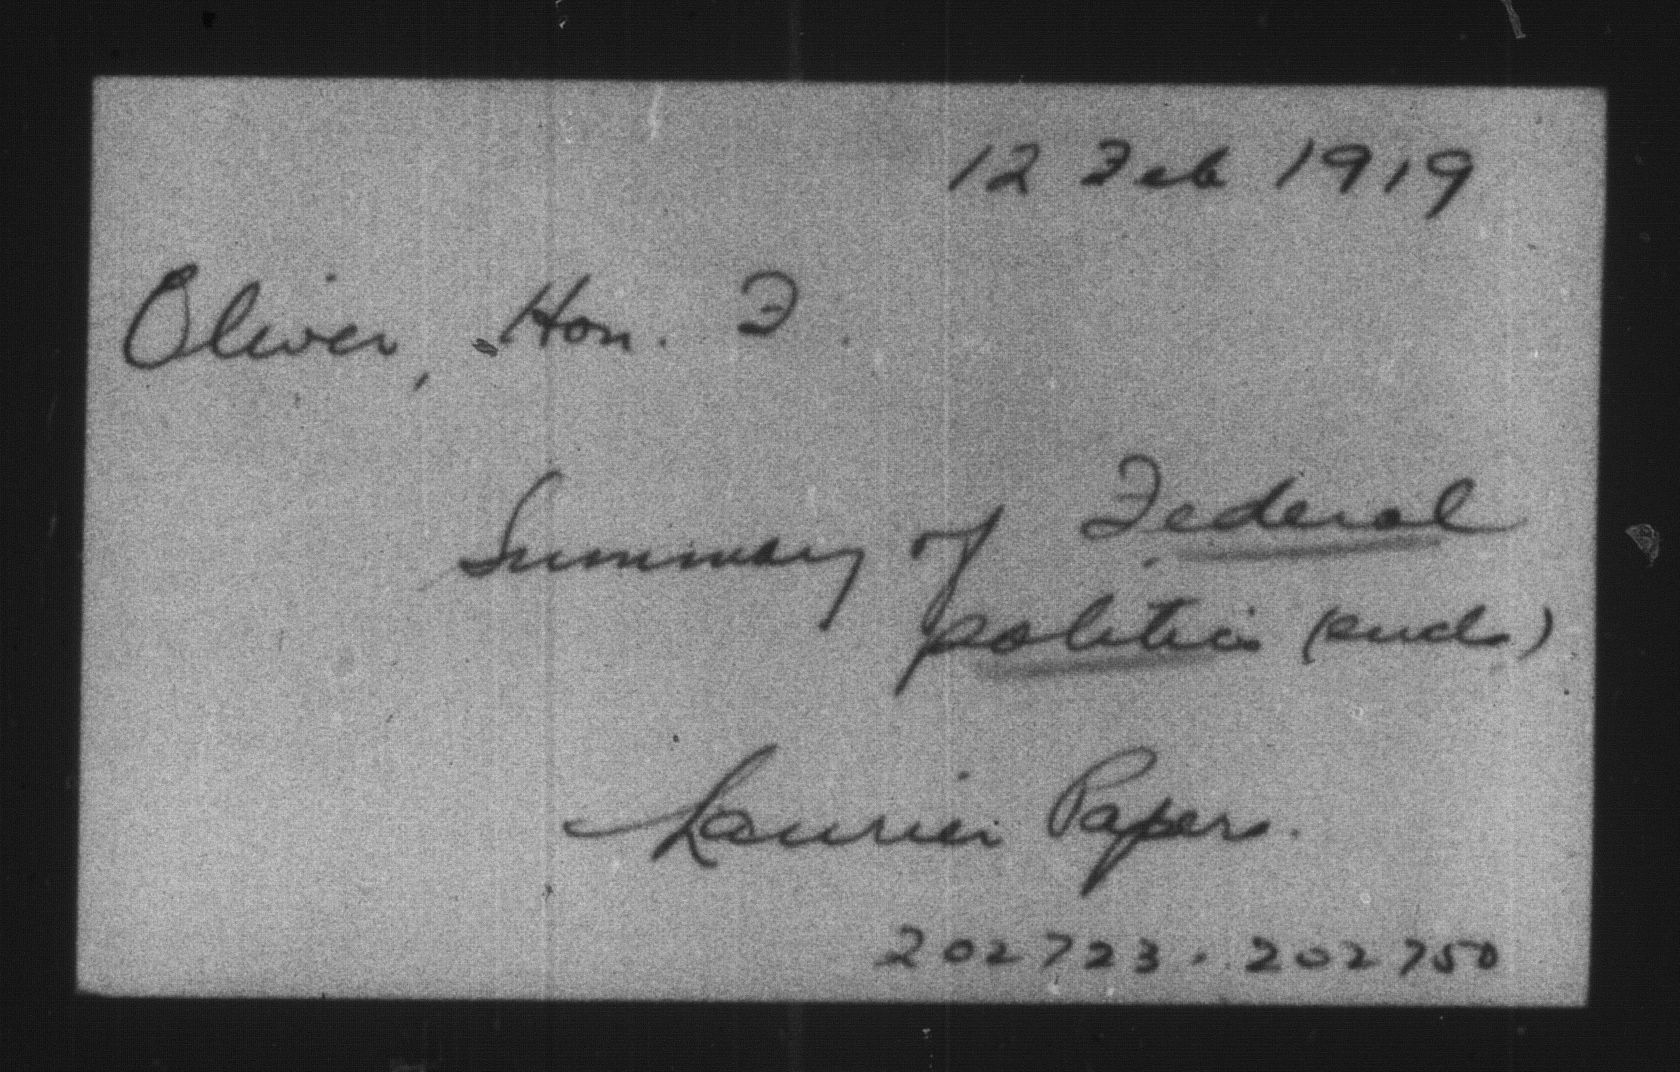 12 Feb 1919
Oliver, Hon. F.
Summary of Federal
politics (encl.)
Laurier Papers.
202723 - 202750